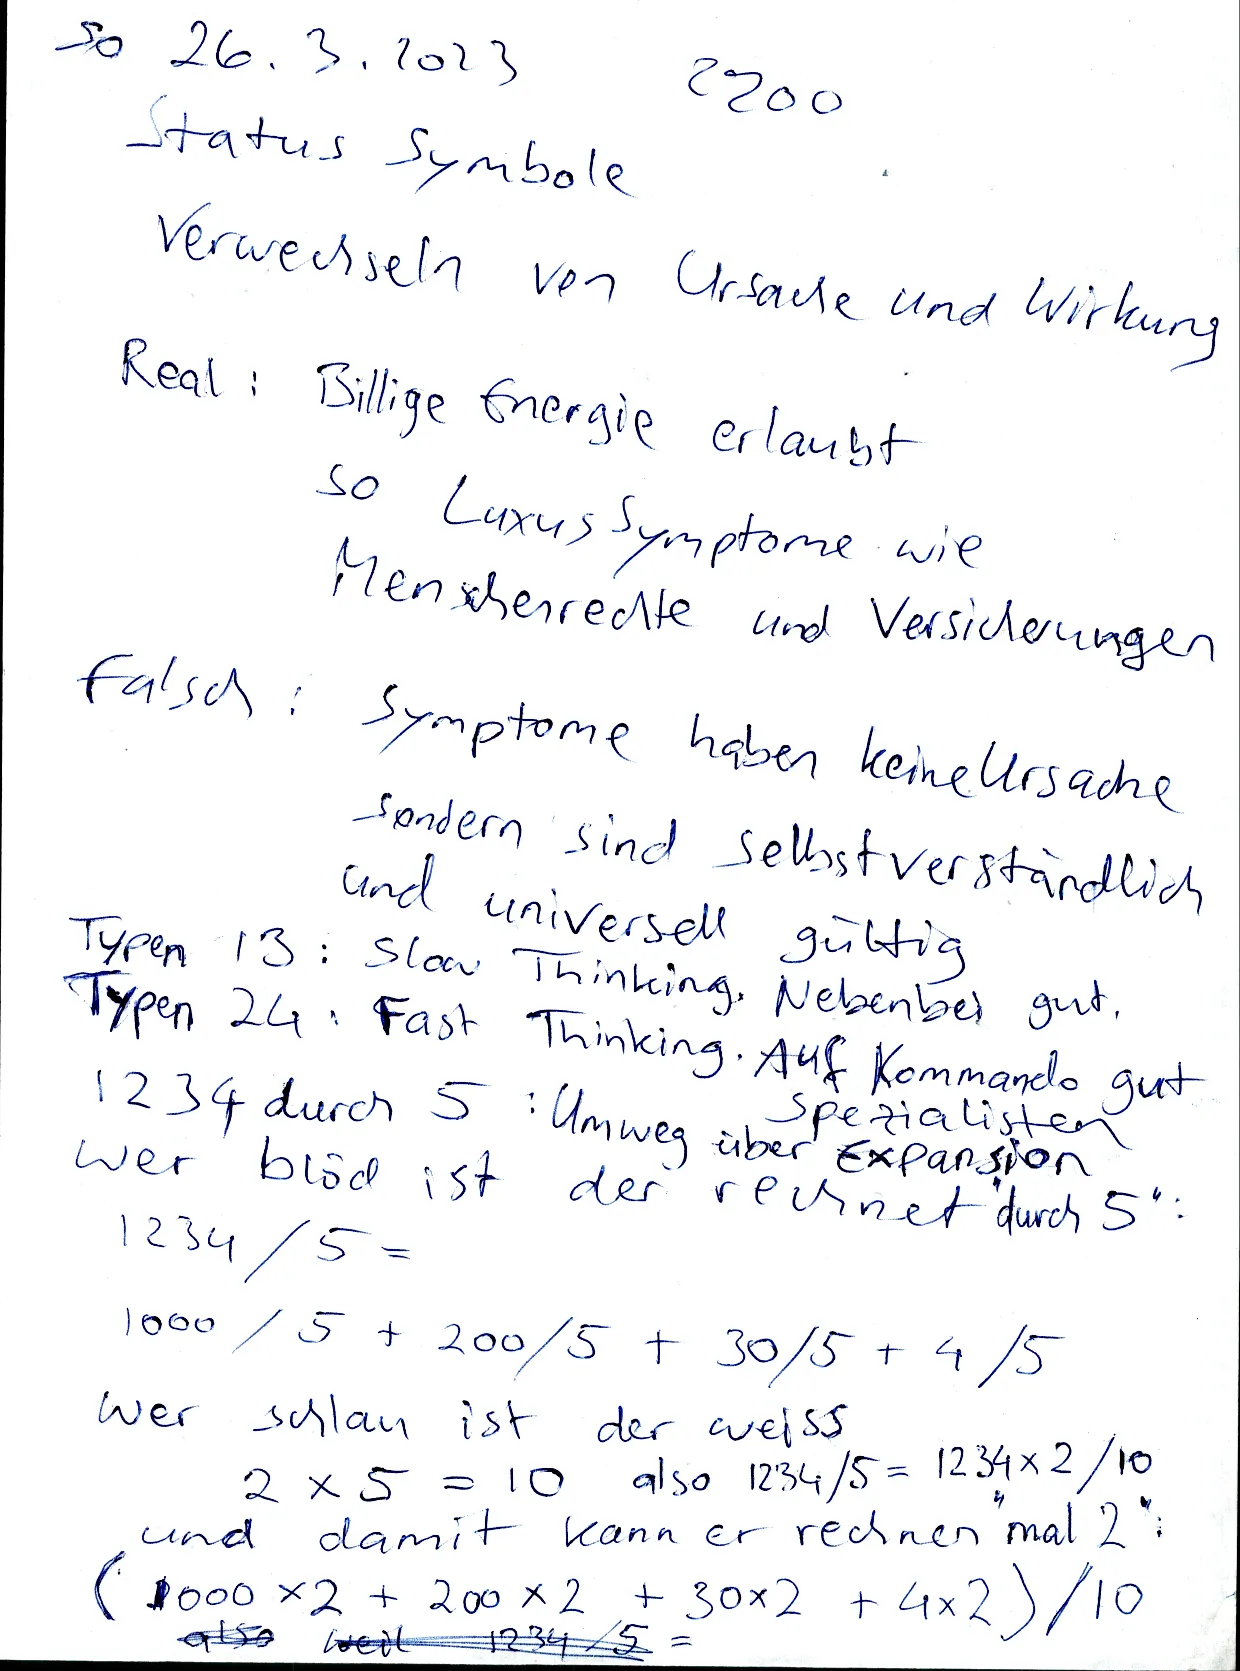 So 26.3.2023 2200
Status Symbole
Verwechseln von Ursache und Wirkung
Real: Billige Energie erlaubt
so Luxus Symptome wie
Menschenrechte und Versicherungen
Falsch: Symptome haben keine Ursache
sondern sind selbstverständlich
und universell gültig
Typen 13: Slow Thinking. Nebenbei gut.
Typen 24: Fast Thinking. Auf Kommando gut
Spezialisten
1234 durch 5: Umweg über Expansion
wer blöd ist der rechnet "durch 5":
1234/5=
1000/5 + 200/5 + 30/5 + 4/5
wer schlau ist der weiss
2 x 5 = 10 also 1234/5 = 1234x2/10
und damit kann er rechnen "mal 2":
(1000x2 + 200x2 + 30x2 + 4x2)/10
also weil 1234/5 =